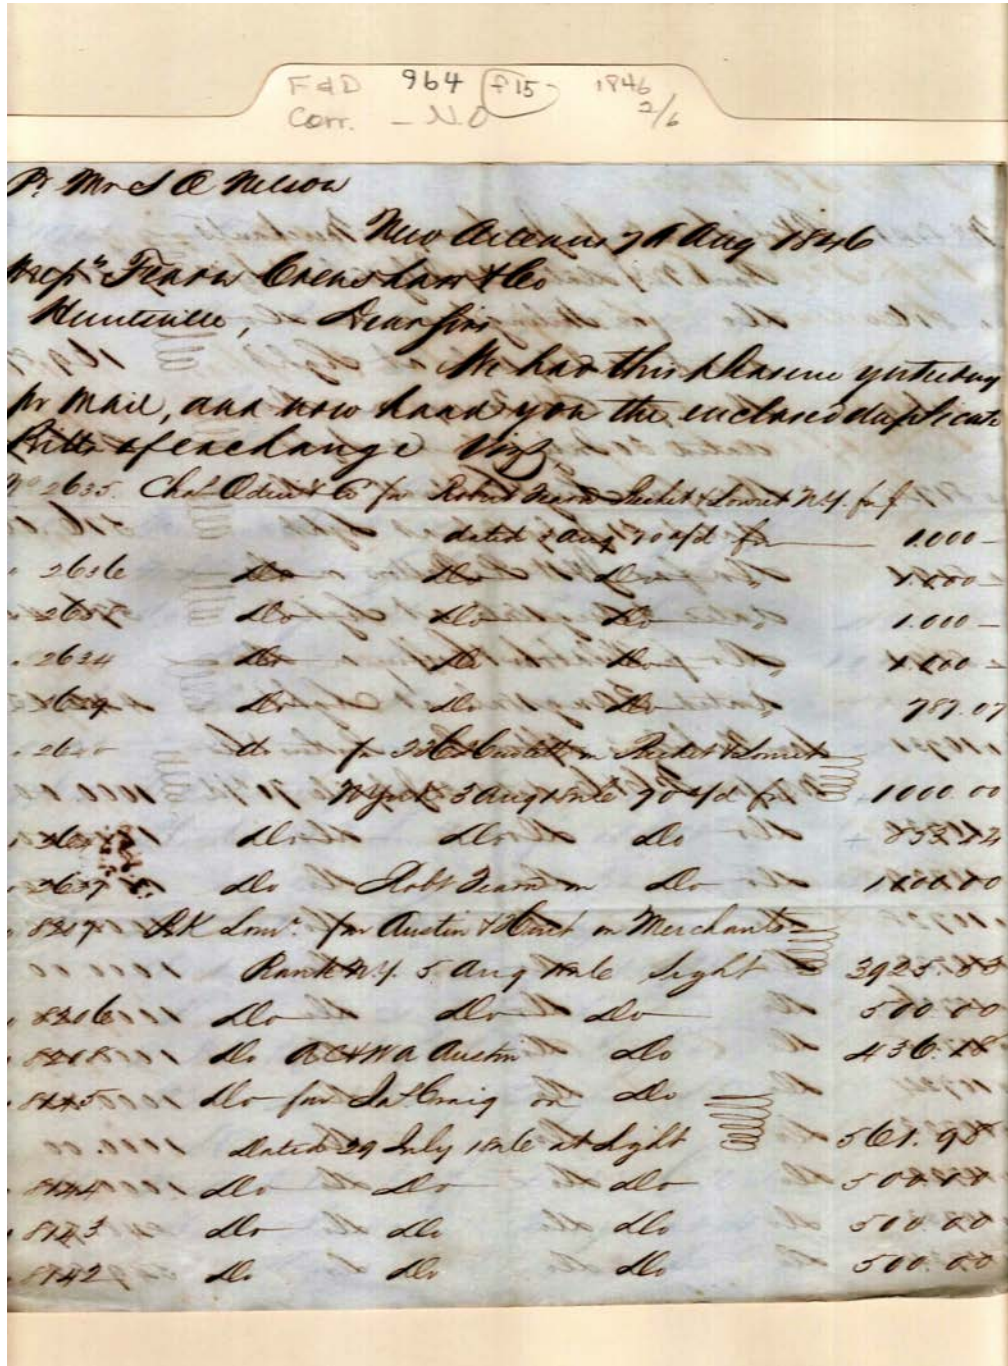 F&D 964 f15- 1846
Corr. - N.O 2/6
Pr Mr S O Nelson
New Orleans 7th Aug 1846
Fearn Crenshaw & Co
Huntsville, Dear Sirs
We had this pleasure yesterday
pr Mail, and now hand you the enclosed duplicate
Bills of exchange Viz
No 2635. Chas Odier & Co for Robert Fearn N.Y. for
dated 3 Aug 90 a/d for 1.000 -
2636 Do Do Do 1.000 -
2637 Do Do Do 1.000 -
2634 Do Do Do 1.000 -
Do Do Do 787.07
2640 do for on
N York 3 Aug 1846 90 a/d for 1000.00
Do Do Do
2637 Do Robt Fearn on Do 1000.00
8207 for Austin & on Merchants
Bank N.Y. 5 Aug 1846 Sight 3925.83
8206 Do Do Do 500.00
8208 Do A C & W A Austin Do 436.18
8145 Do for Jas Craig on Do
Dated 29 July 1846 at Sight 561.98
8144 Do Do Do 500.00
8143 Do Do Do 500.00
8142 Do Do Do 500.00